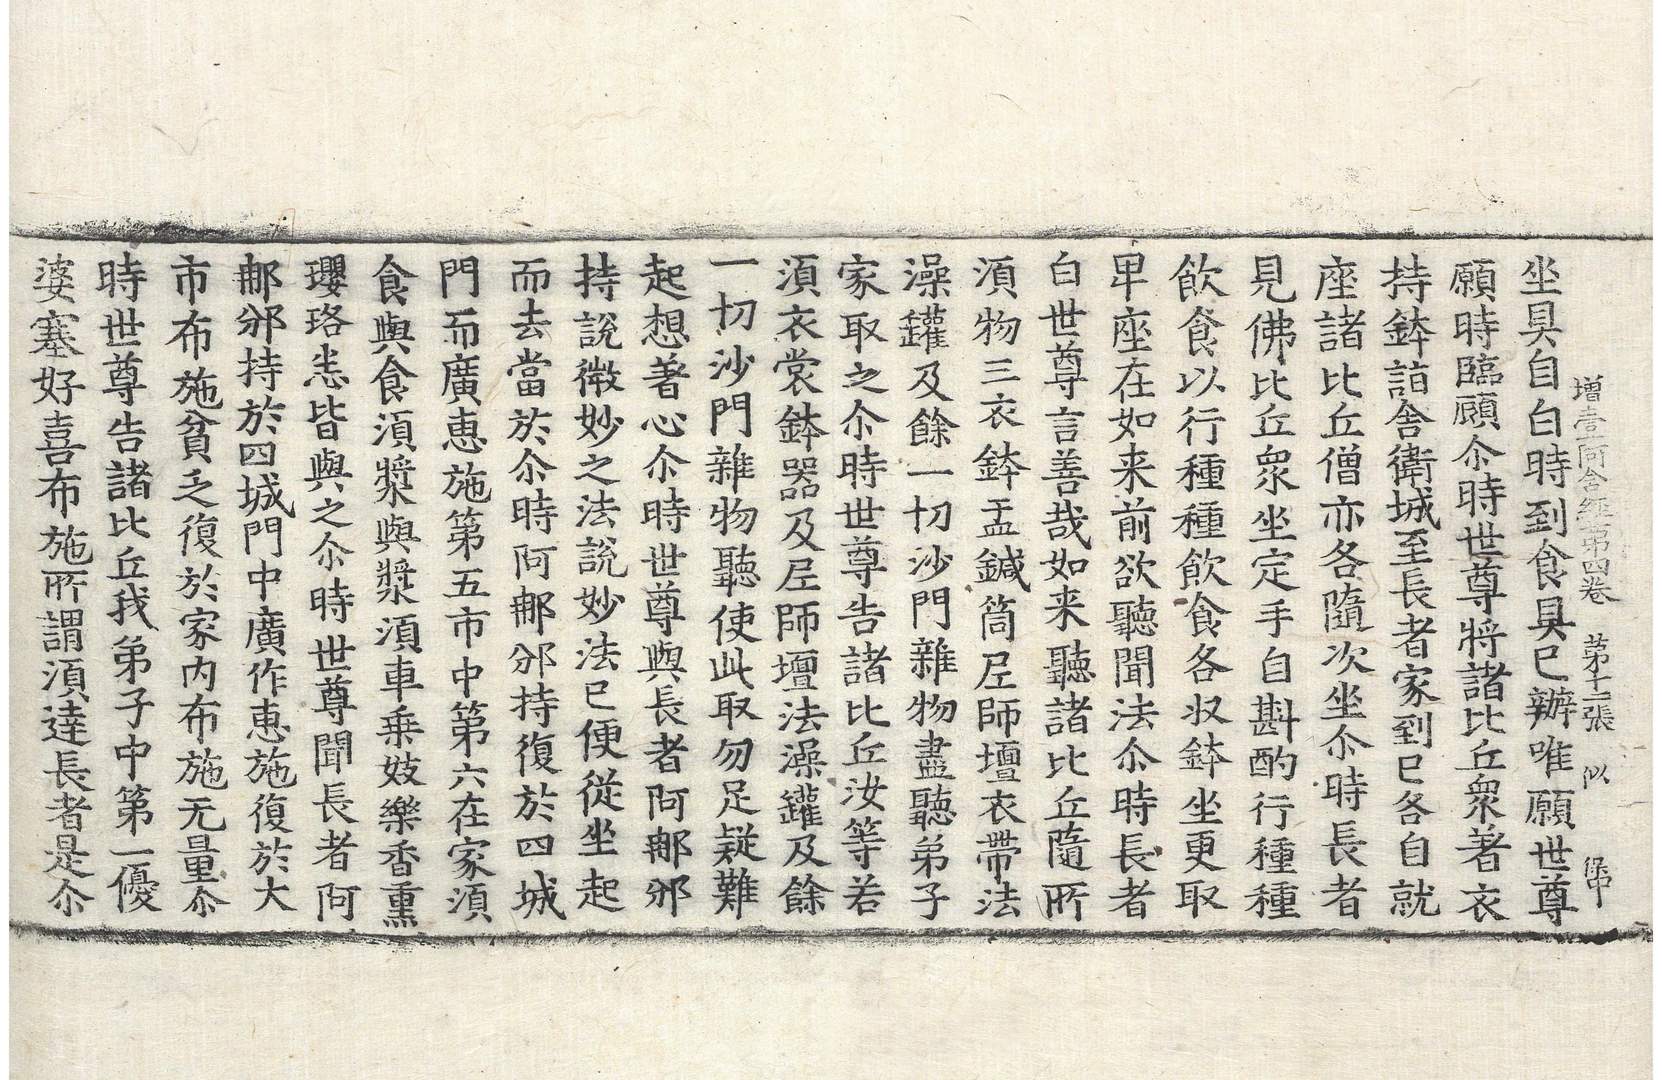 增壹阿含經第四卷 第十二張 似
坐具自白時到食具已辦唯願世尊
願時臨顧尒時世尊將諸比丘衆著衣
持鉢詣舍衛城至長者家到已各自就
座諸比丘僧亦各隨次坐尒時長者
見佛比丘衆坐定手自斟酌行種種
飲食以行種種飲食各收鉢坐更取
卑座在如来前欲聽聞法尒時長者
白世尊言善哉如来聽諸比丘隨所
須物三衣鉢盂鍼筒尼師壇衣帶法
澡罐及餘一切沙門雜物盡聽弟子
家取之尒時世尊告諸比丘汝等若
須衣裳鉢器及尼師壇法澡罐及餘
一切沙門雜物聽使此取勿足疑難
起想著心尒時世尊與長者阿那邠
持說微妙之法說妙法已便從坐起
而去當於尒時阿那邠持復於四城
門而廣惠施第五市中第六在家須
食與食須漿與漿須車乗妓樂香熏
瓔珞悉皆與之尒時世尊聞長者阿
那邠持於四城門中廣作惠施復於大
市布施貧乏復於家内布施无量尒
時世尊告諸比丘我弟子中第一優
婆塞好喜布施所謂須達長者是尒